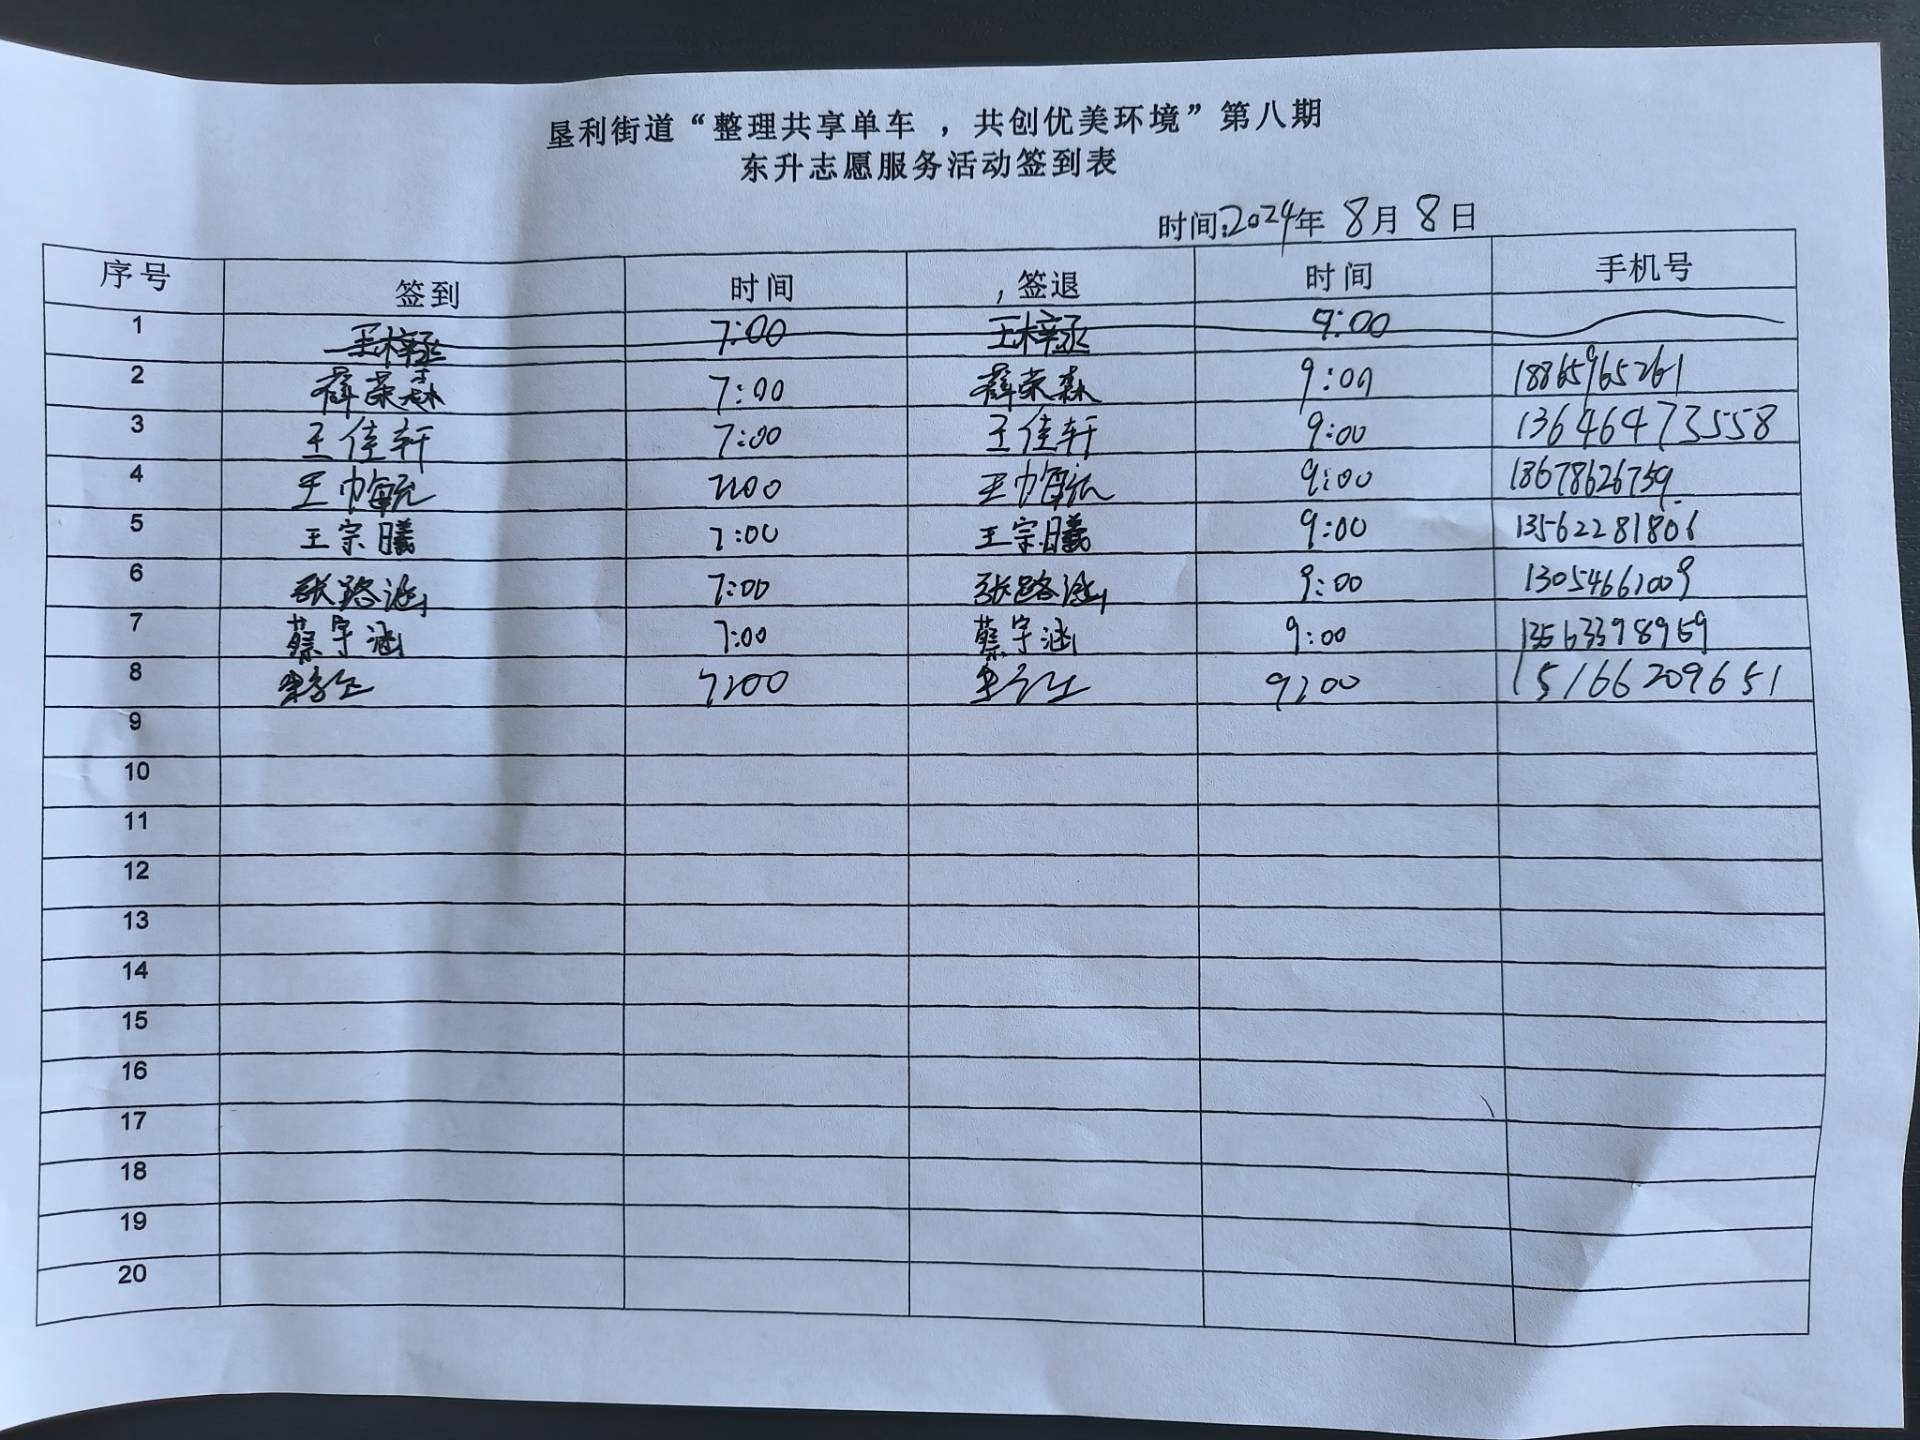 垦利街道“整理共享单车，共创优美环境”第八期
东升志愿服务活动签到表
时间:2024年 8月 8日
序号 签到 时间 ,签退 时间 手机号
1 王梓丞 7:00 王梓丞 9:00
2 薛荣森 7:00 薛荣森 9:00 18865965261
3 王佳轩 7:00 王佳轩 9:00 13646473558
4 王 7:00 王 9:00 18678626759
5 王宗曦 7:00 王宗曦 9:00 13562281806
6 张路涵 7:00 张路涵 9:00 13054661009
7 蔡宇涵 7:00 蔡宇涵 9:00 13563398959
8 7:00 9:00 15166209651
9
10
11
12
13
14
15
16
17
18
19
20